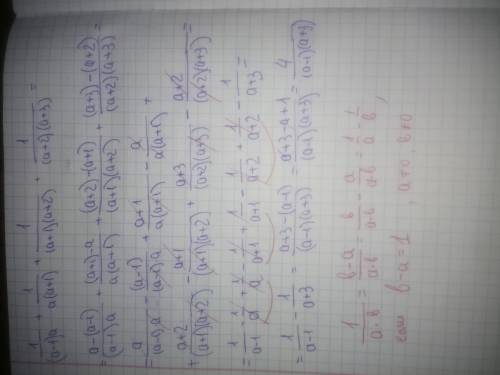 1/((a-1)a) + 1/(a(a+1)) + 1/((a+1)(a+2)) + 1/((a+2)(a+3)) =
= (a-(a-1))/((a-1)a) + ((a+1)-a)/(a(a+1)) + ((a+2)-(a+1))/((a+1)(a+2)) + ((a+3)-(a+2))/((a+2)(a+3)) =
= a/((a-1)a) - (a-1)/((a-1)a) + (a+1)/(a(a+1)) - a/(a(a+1)) +
+ (a+2)/((a+1)(a+2)) - (a+1)/((a+1)(a+2)) + (a+3)/((a+2)(a+3)) - (a+2)/((a+2)(a+3)) =
= 1/(a-1) - 1/a + 1/a - 1/(a+1) + 1/(a+1) - 1/(a+2) + 1/(a+2) - 1/(a+3) =
= 1/(a-1) - 1/(a+3) = (a+3-(a-1))/((a-1)(a+3)) = (a+3-a+1)/((a-1)(a+3)) = 4/((a-1)(a+3))
1/(a·в) = (в-a)/(a·в) = в/(a·в) - a/(a·в) = 1/a - 1/в
если в-a=1, a≠0 в≠0